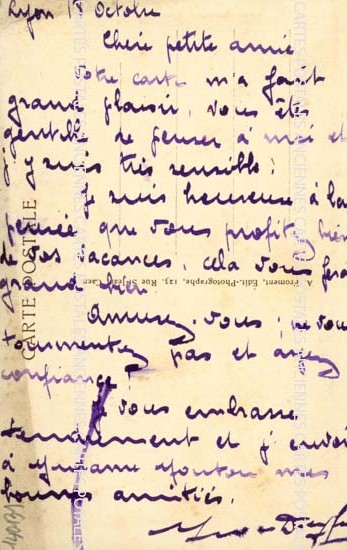 Lyon 1 Octobre
Chère petite amie
Votre carte m'a fait
grand plaisir, vous êtes
gentille de penser à moi et
j'y suis très sensible.
Je suis heureuse à la
pensée que vous profitez bien
de vos vacances, cela vous fera
grand bien
amusez-vous; ne vous
tourmentez pas et ayez
confiance!
Je vous embrasse
tendrement et j'envoie
à Madame mes
bonnes amitiés.
CARTE POSTALE
A. Froment, Édit.-Photographe, 123, Rue St-Jean, Caen